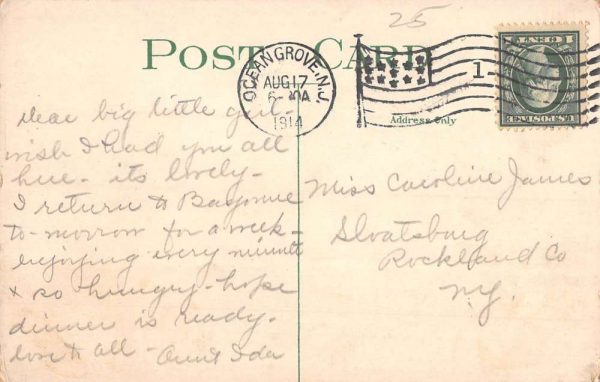 25
POST CARD
OCEAN GROVE, N.J.
AUG 17
6-30A
1914
1
Address Only
Dear big little girl-
wish I had you all
here - its lovely -
I return to Bayonne
to-morrow for a week -
enjoying every minute
& so hungry - hope
dinner is ready -
love to all - Aunt Ida
Miss Caroline James
Sloatsburg
Rockland Co
N.Y.